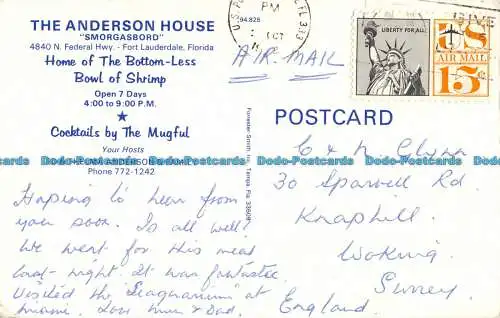 THE ANDERSON HOUSE
"SMORGASBORD"
4840 N. Federal Hwy. - Fort Lauderdale, Florida
Home of The Bottom-Less
Bowl of Shrimp
Open 7 Days
4:00 to 9:00 P.M.
Cocktails by The Mugful
Your Hosts
ANDERSON
Phone 772-1242
Hoping to hear from
you soon. Is all well?
We went for this meal
last night. It was fantastic
Visited the "Seaquarium" at
Miami. Love Mum & Dad.
PM
AIR MAIL
LIBERTY FOR ALL
US
AIR MAIL
15c
GIVE
POSTCARD
30 Sparvell Rd.
Knaphill
Woking
Surrey
England.
Dodo-Postcards Dodo-Postcards Dodo-Postcards Dodo-Postcards